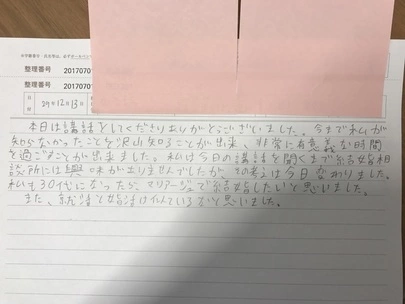 整理番号 20170701
整理番号 20170701
29年12月13日
本日は講話をしてくださりありがとうございました。今まで私が
知らなかったことを沢山知ることが出来、非常に有意義な時間
を過ごすことが出来ました。私は今日の講話を聞くまで結婚相
談所には興味がありませんでしたが、その考えは今日変わりました。
私も30代になったら、マリアージュで結婚したいと思いました。
また、就活と婚活は似ているなと思いました。